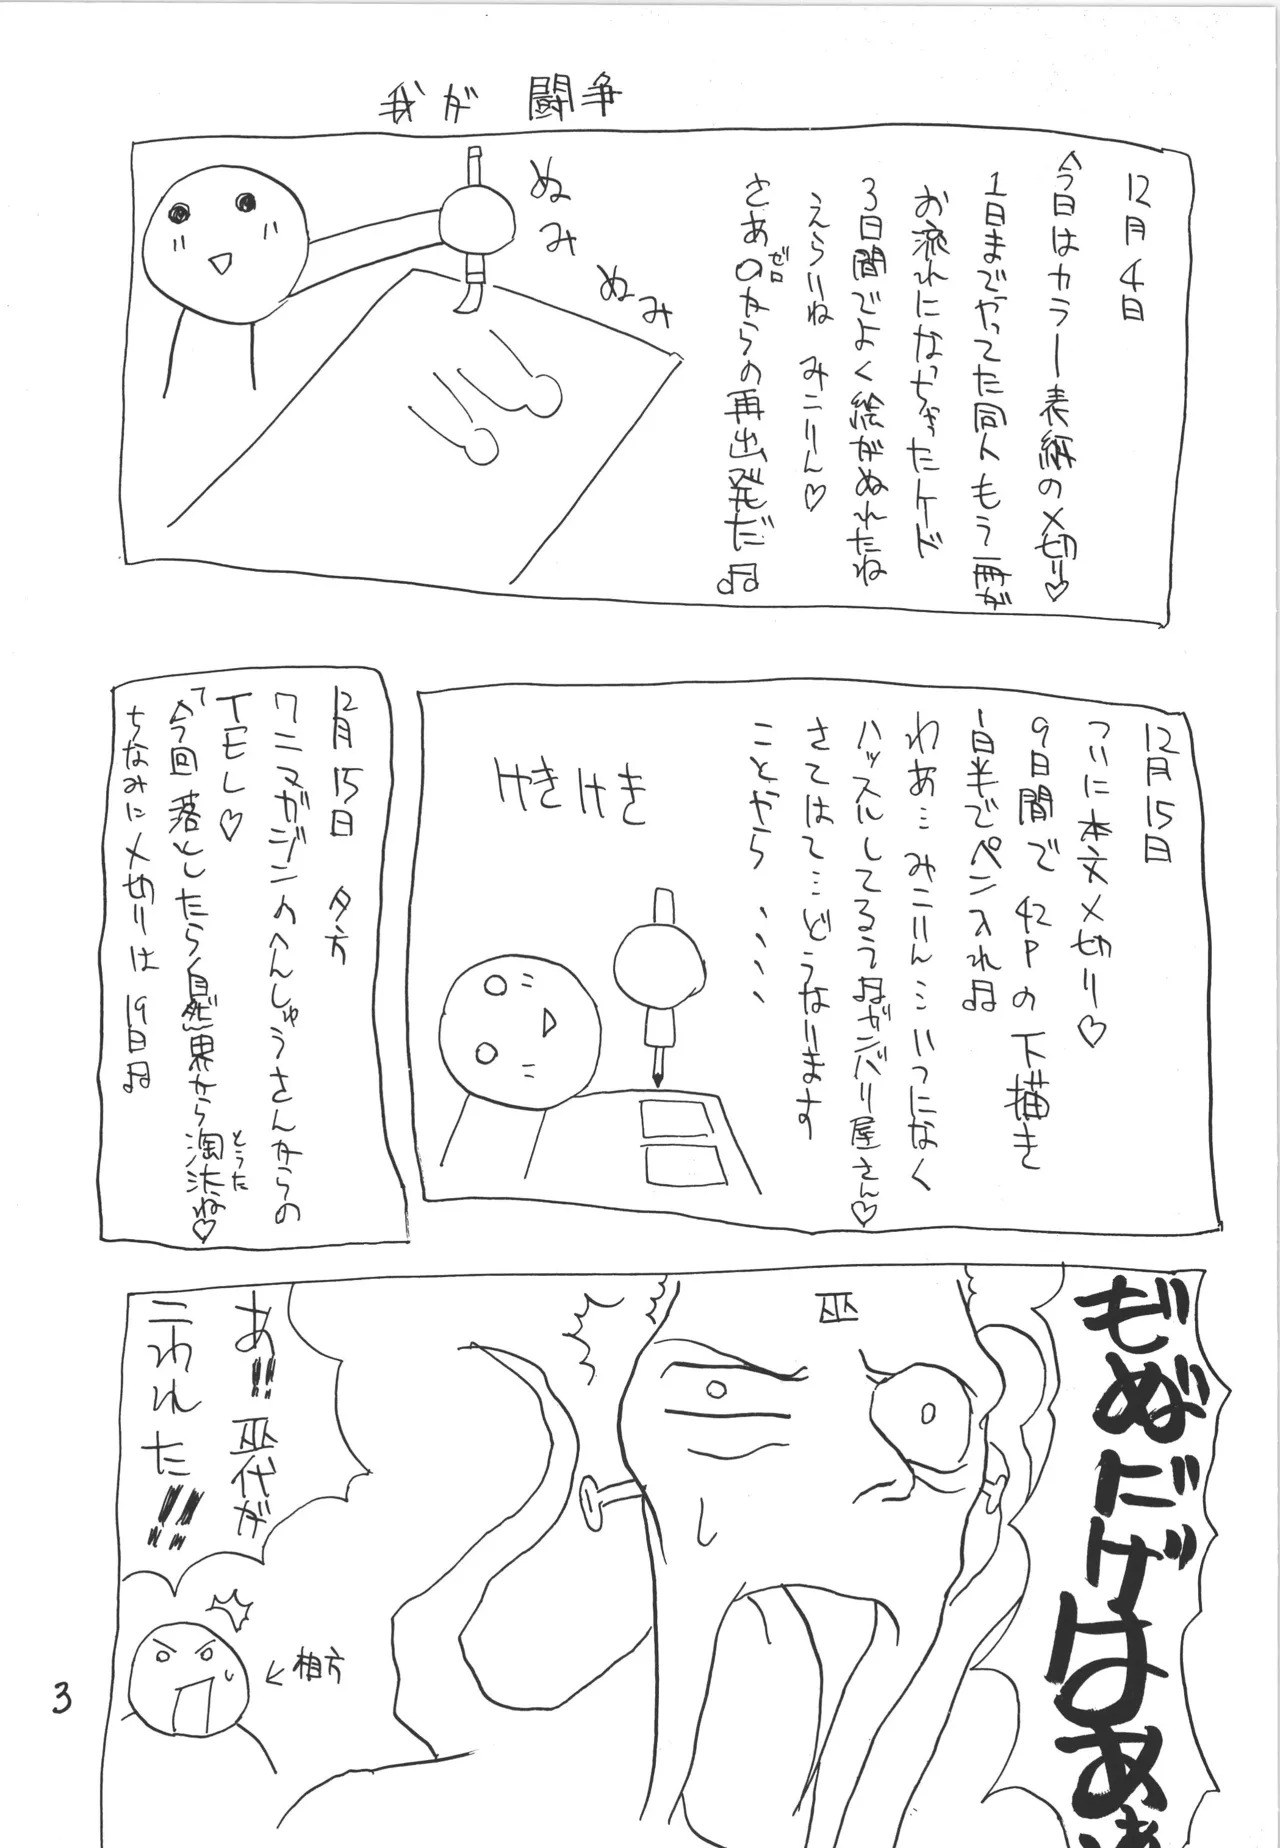 我が闘争
12月4日
今日はカラー表紙の〆切り♡
1日までやってた同人もう一冊が
お流れになっちゃったケド
3日間でよく絵がぬれたね
えらいね みこりん♡
さあ0からの再出発だ♫
ゼロ
ぬみ
ぬみ
12月15日
ついに本文〆切り♡
9日間で 42Pの下描き
一日半でペン入れ♫
わあ… みこりん…いつになく
ハッスルしてるう♫ガンバリ屋さん♡
さてはて…どうなります
ことやら、、、、
けきけき
12月15日 夕方
ワニマガジンのへんしゅうさんからの
TEL♡
「今回落としたら自然界から淘汰ね♡
とうた
ちなみに〆切りは19日♫
もぬだげはあ
巫
あ!! 巫代が
こわれた!!
←相方
3